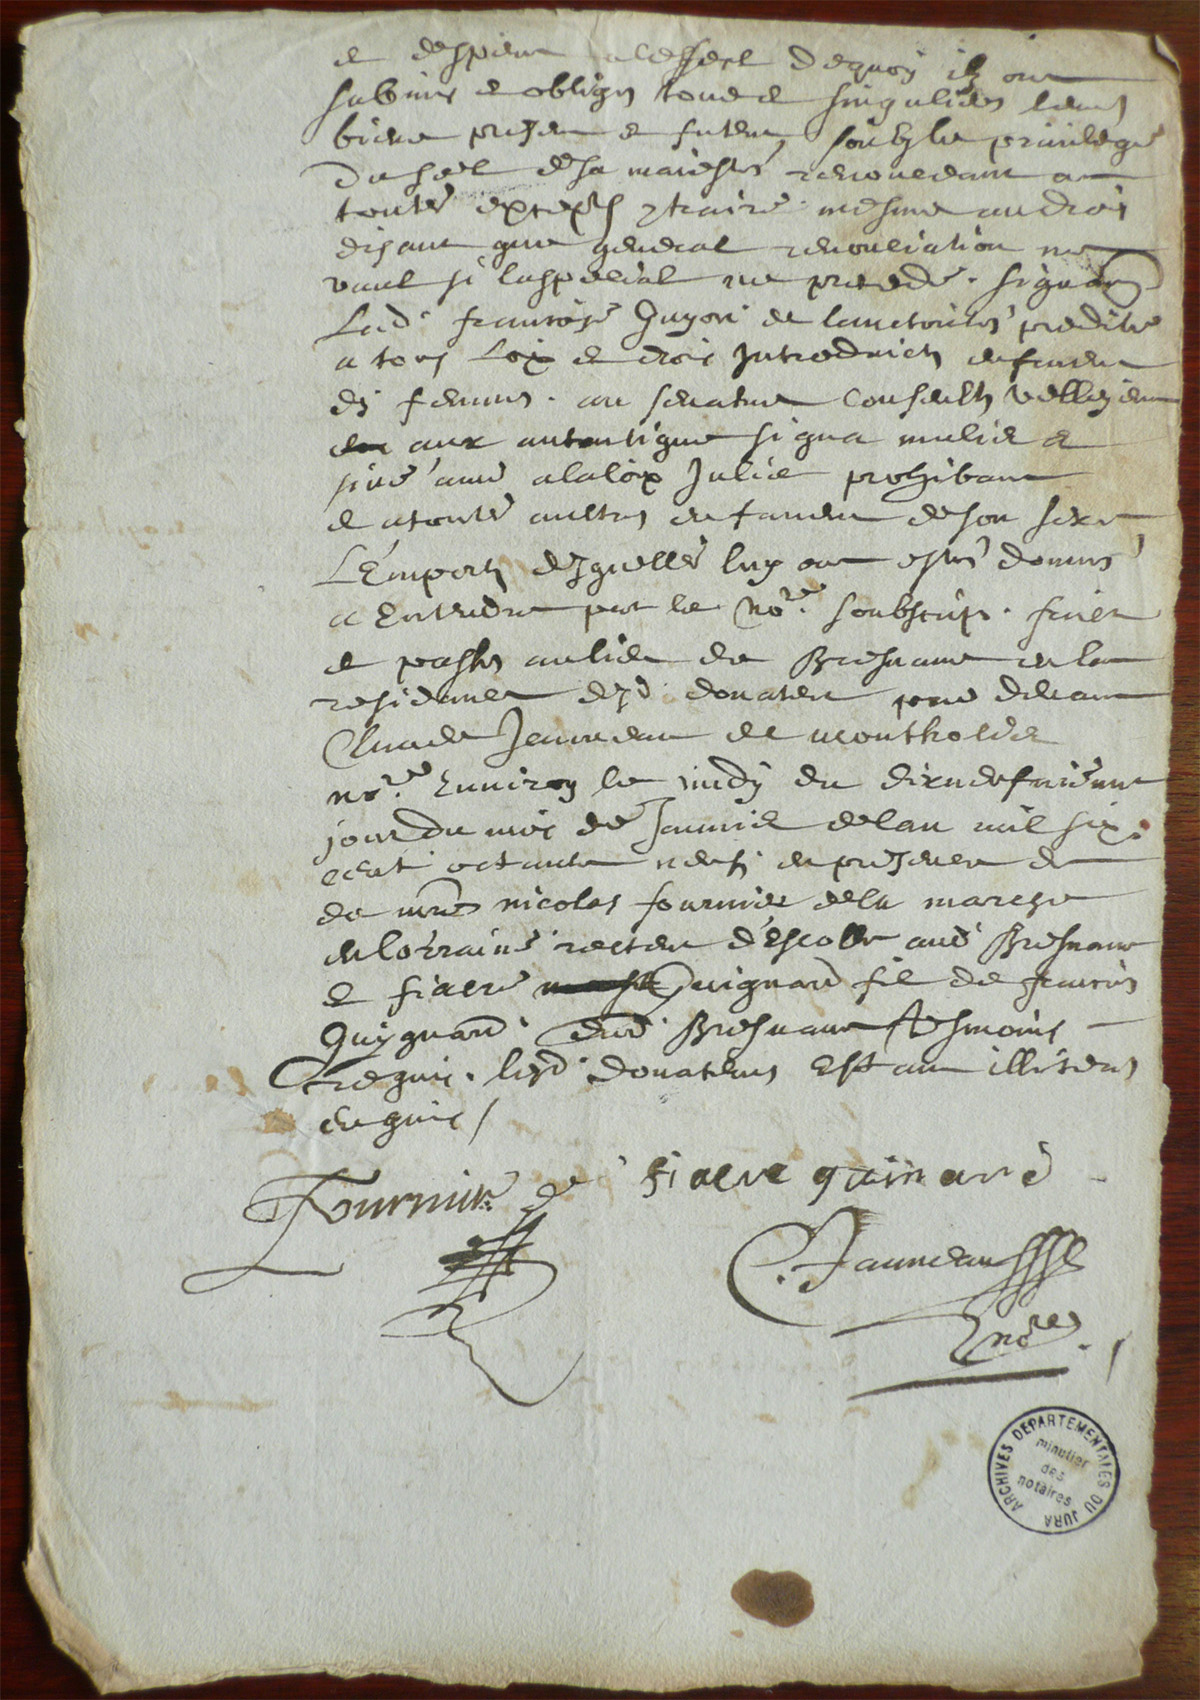 et despens a leffect dequoy ilz ont
submis et obligés tous et singuliers leurs
biens presens et futurs, soubz le privilege
du seel de sa maiesté renonceant a
toutes exceptons contraire mesme au droit
disant que general renonciation ne
vault si laspecial ne precede.
Lad. françoise Guyon de lauctorité predite
a tous Loix et droit Introduict en faveur
des femmes. au senatus Consulte Velleyen
aux autentique si qua mulier et
sive a me a la loix Julie prohibant
et a toutes aultres en faveur de son sexe
L'Emports desquelles luy ont estés donnés
a Entendre par le no.re soubscrip. faict
et passé au lieu de Bresnans en la
residance desd. donateur pardevant
Claude Jeunneau de montholier
no.re Environ le midy du dixneufvieme
jour du mois de Janvier de lan mil six
cent octante neuf en presence de
de mre nicolas fournier de la marche
en lorraine recteur d'Escolle aud Bresnans
et fiacre Quignard fil de françois
Quygnard dud. Bresnans tesmoins
requis. lesd. donateurs Estant illiters
enquis /
Fournier
fiacre quinard
C. Jaunneau
no.re
ARCHIVES DEPARTEMENTALES DU JURA
minutier
des
notaires